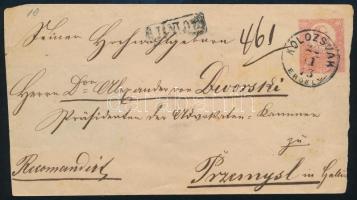 10
AJÁNLOTT
Seiner Hochwohlgeboren 461
KOLOZSVÁR
ERDÉLY
Herrn Dor Alexander von Dworski
Präsidenten der Advokaten-Kammer
zu
Recomandirt Przemysl in Galizien